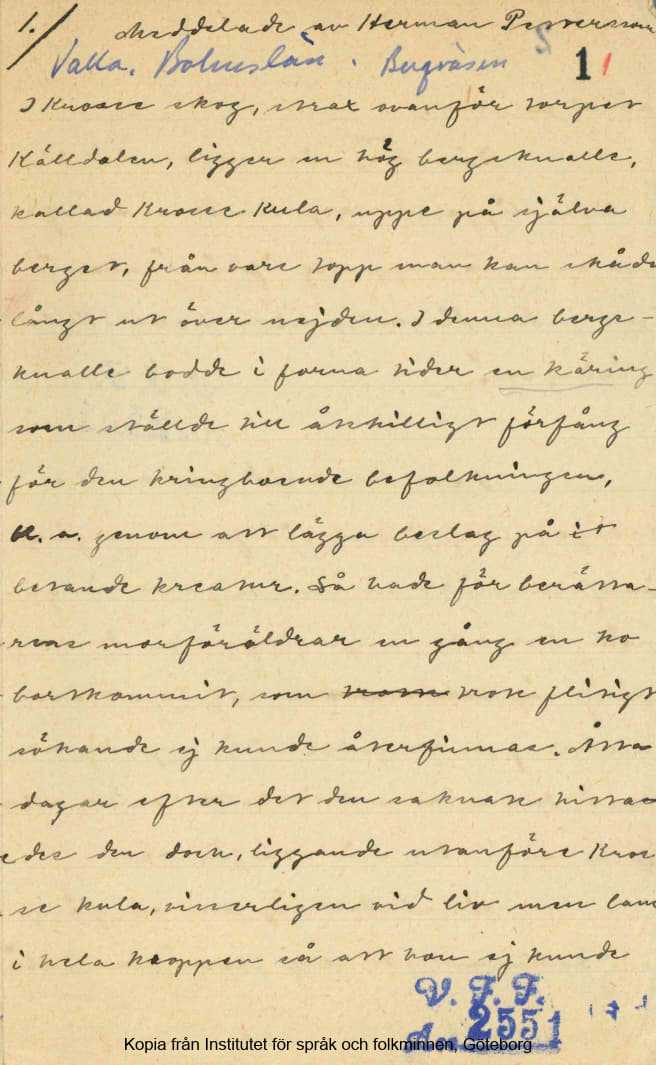 1./ Meddelade av Herman Pettersson
Valla, Bohuslän. Bergväsen S 1 1
I Krosse skog, strax ovanför torpet
Källdalen, ligger en hög bergsknalle,
kallad Krosse Kula, uppe på själva
berget, från vars topp man kan skåda
långt ut över nejden. I denna bergs-
knalle bodde i forna tider en käring
som ställde till åtskilligt förfång
för den kringboende befolkningen,
bl. a. genom att lägga beslag på
betande kreatur. Så hade för berätta-
rens morföräldrar en gång en ko
bortkommit, som trots trots flitigt
sökande ej kunde återfinnas. Åtta
dagar efter det den saknats hitta-
des den dock, liggande utanför Kros-
se kula, visserligen vid liv men lam
i hela kroppen så att hon ej kunde
V. F. F.
2551
Kopia från Institutet för språk och folkminnen, Göteborg